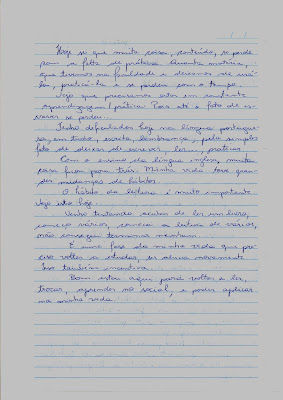 Hoje sei que muita coisa, conteúdo, se perde
com a falta de prática. Quanta matéria,
que tivemos na faculdade e deixamos de usá-
la, praticá-la e se perdeu com o tempo.
Vejo que precisamos estar em constante
aprendizagem/prática. Pois até o fato de es-
crever se perdeu.
Tenho dificuldades hoje na língua portugue-
sa, em tudo, escrita, lembrança, pelo simples
fato de deixar de escrever, ler e praticar.
Com o ensino da língua inglesa, muita
coisa ficou para trás. Minha vida teve gran-
des mudanças de hábitos.
O hábito da leitura é muito importante.
Vejo isto hoje.
Venho tentando acabar de ler um livro,
começo vários, comecei a leitura de vários,
não consegui terminar nenhum.
É uma fase da minha vida que pre-
ciso voltar a estudar, ser aluna novamente.
Isso também incentiva.
Bom estar aqui para voltar a ler,
trocar, aprender no social, e poder aplicar
na minha vida.